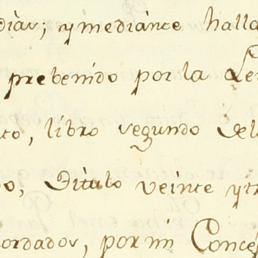 diàs; y mediante halla
prebenido por la Le
to, libro segundo del
o, Titulo veinte y t
cordados, por mi Conce